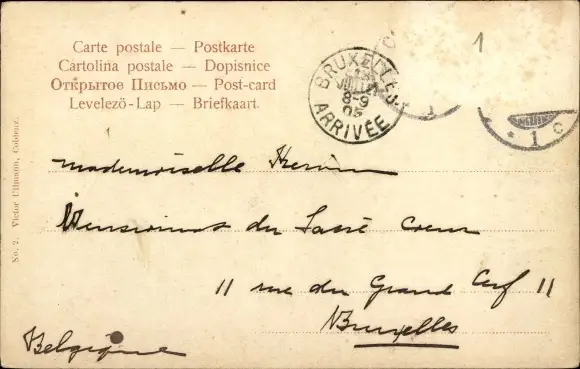 Carte postale — Postkarte
Cartolina postale — Dopisnice
Открытое Письмо — Post-card
Levelező-Lap — Briefkaart.
1
BRUXELLES
13
JUILLET
8-9
05
ARRIVÉE
1
* 1 c
mademoiselle
Pensionnat du Sacré Coeur
11 rue du Grand Cerf 11
Bruxelles
Belgique
No. 2. Victor Ullmann, Coblenz.